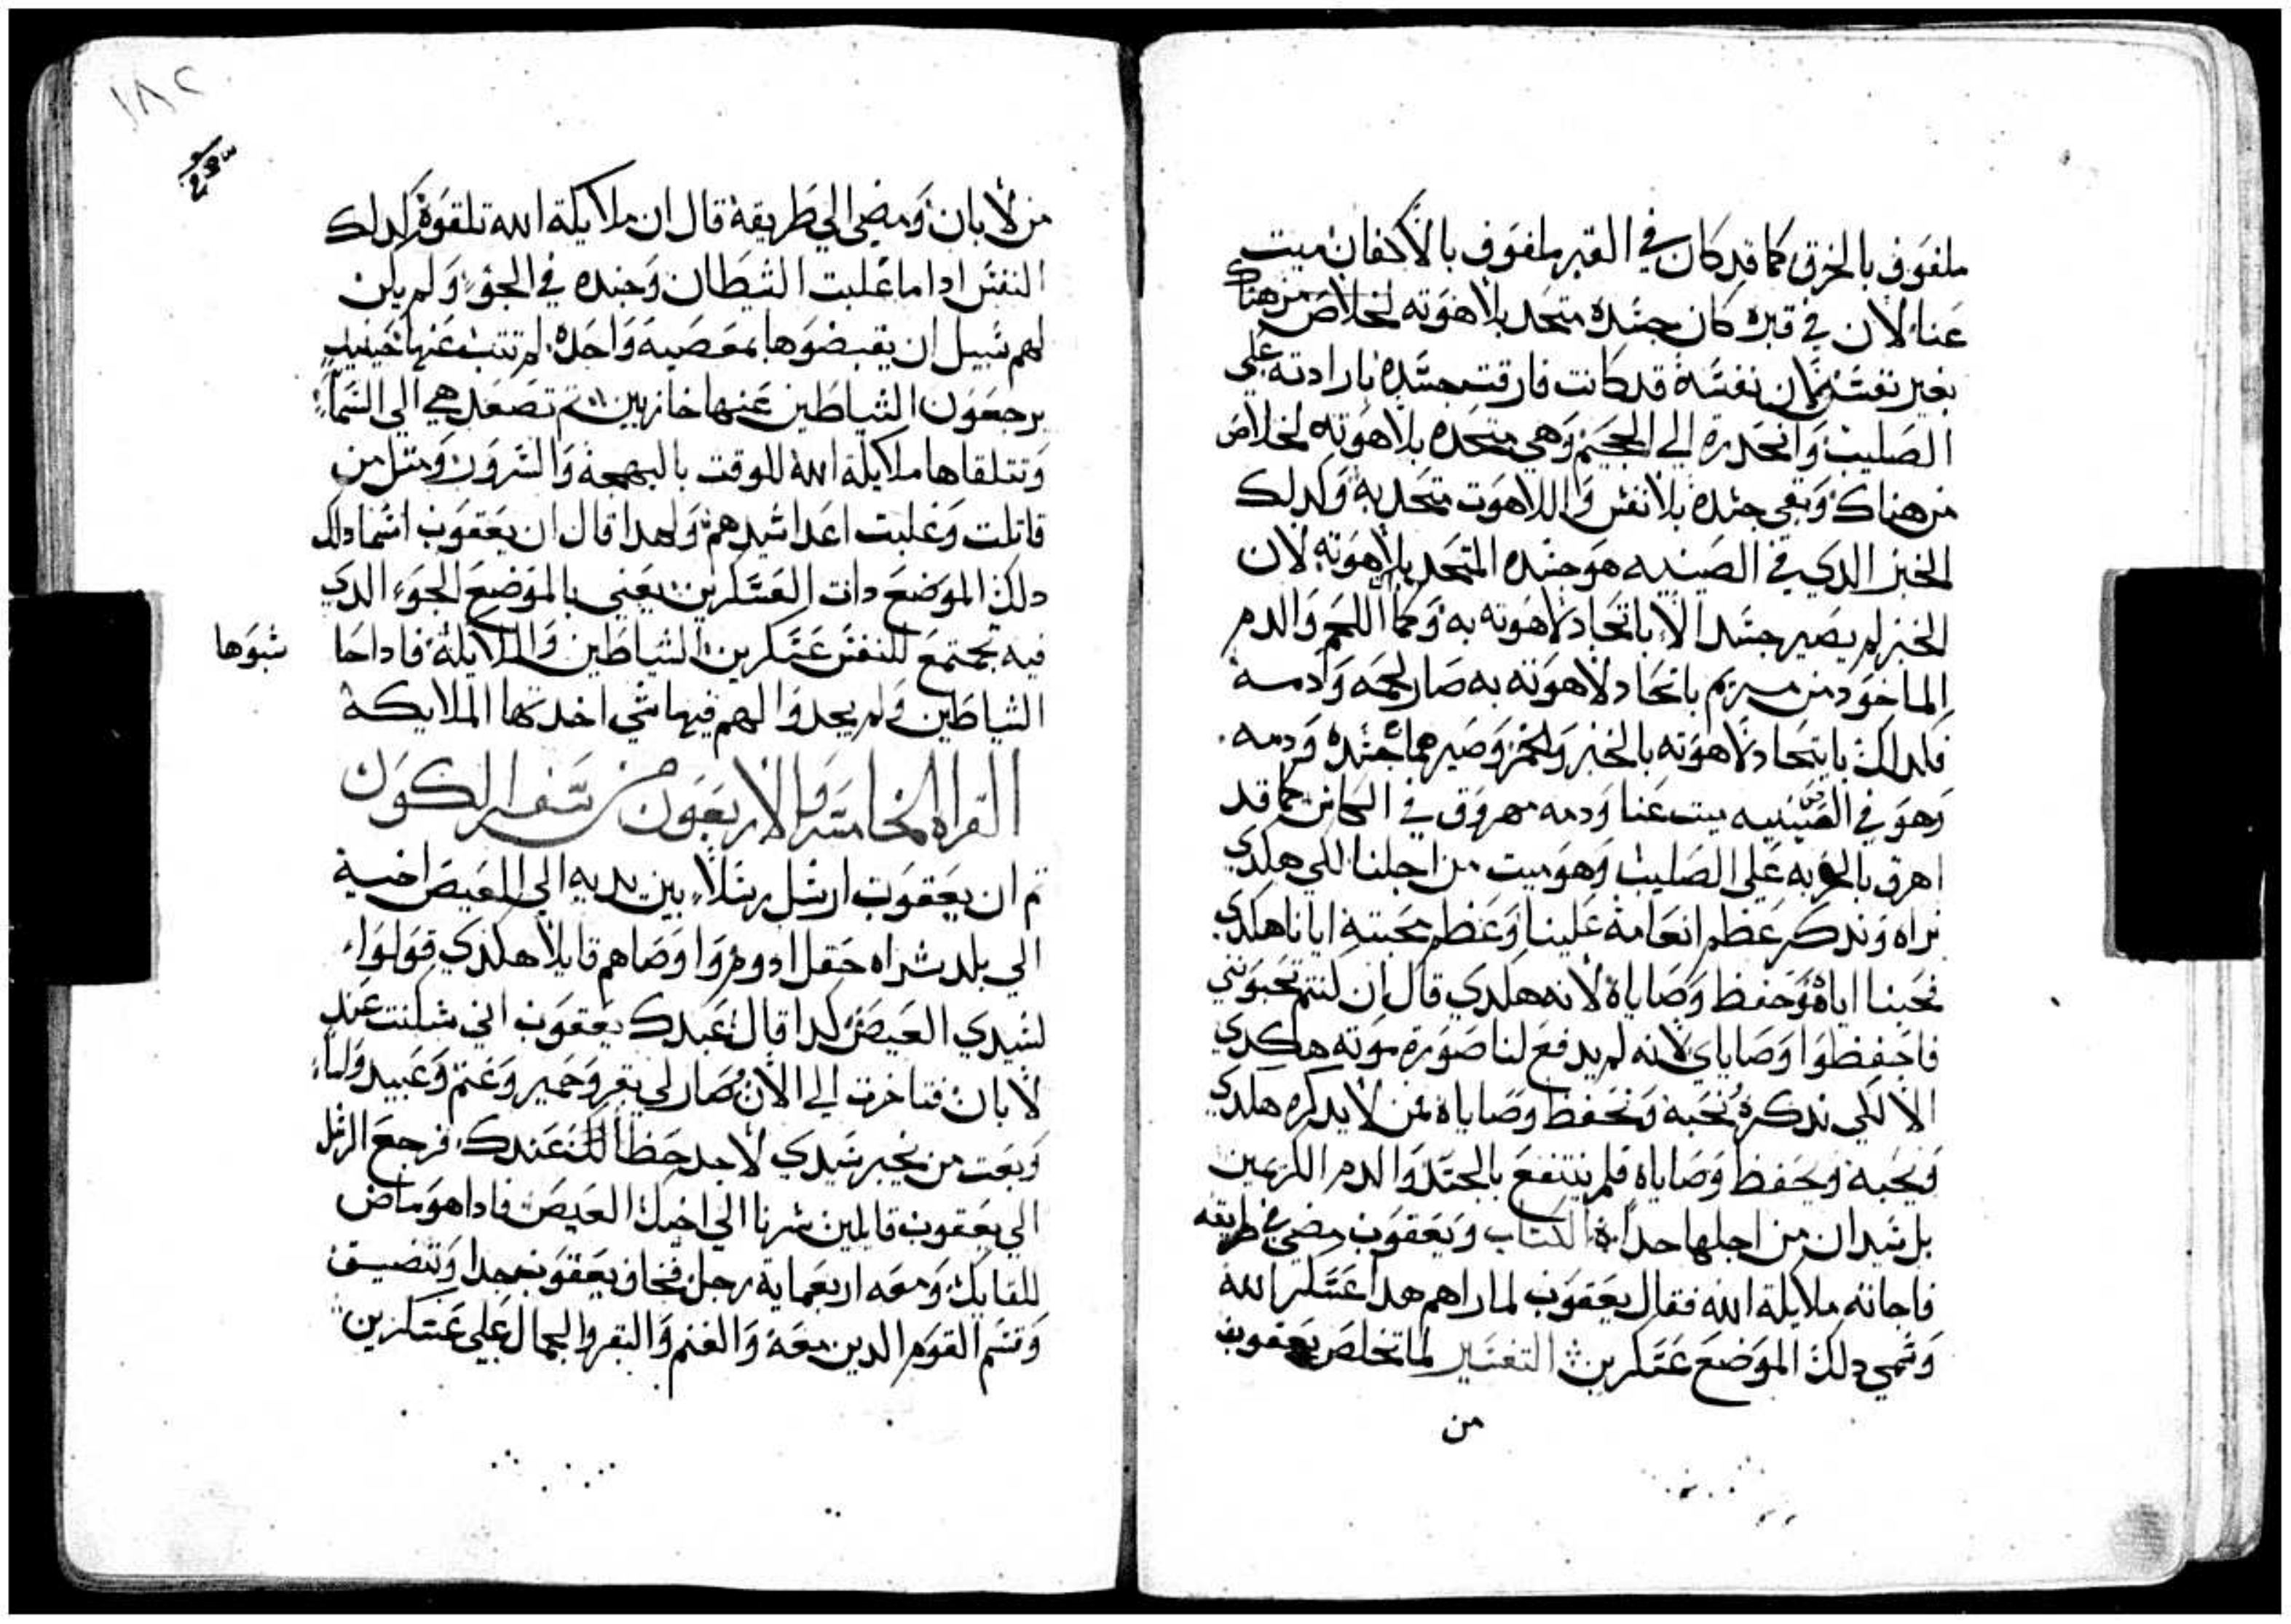 ملفوف بالخرق كما قد كان في القبر ملفوف بالاكفان ميت
عنا لان في قبره كان جسده متحد بلاهوته لخلاص من هناك
بغير نفسه لان نفسه قد كانت فارقت جسده بارادته علي
الصليب وانحدرة الي الجحيم وهي متحده بلاهوته لخلاص
من هناك وبقي جسده بلا نفس واللاهوت متحد به وكدلك
الخبز الدي في الصينيه هو جسده المتحد بلاهوته لان
الخبز لم يصير جسدا الا باتحاد لاهوته به وكما اللحم والدم
الماخود من مريم باتحاد لاهوته به صار لحمه وادمه
فلدلك باتحاد لاهوته بالخبز والخمر وصيرهما جسده ودمه
وهو في الصينيه ميت عنا ودمه مهروق في الكاس كما قد
اهرق بالحربه علي الصليب وهو ميت من اجلنا لكي هكدي
نراه وندكر عظم انعامه علينا وعظم محبته ايانا هكدي
نحبنا اياه ونحفظ وصاياه لانه هكدي قال ان كنتم تحبوني
فاحفظوا وصاياي لانه لم يدفع لنا صورة موته هكدي
الا لكي ندكره نحبه ونحفظ وصاياه فمن لا يدكره هكدي
ويحبه ويحفظ وصاياه فلم ينتفع بالجسد والدم الكريمين
بل يدان من اجلها جدا الكتاب ويعقوب مضي في طريقه
فاجاته ملايكة الله فقال يعقوب لما راهم هدا عسكر الله
وسمي دلك الموضع عسكرين التفسير لما تخلص يعقوب
من
١٨٢
من لابان ومضي الي طريقه قال ان ملايكة الله تلقوه كدلك
النفس ادا ما غلبت الشيطان وجنده في الجو ولم يكن
لهم سبيل ان يقبضوها بمعصيه واحده لم تتب عنها حينيد
يرجعون الشياطين عنها خازيين ثم تصعد هي الي السما
وتتلقاها ملايكة الله للوقت بالبهجة والسرور ومثل من
قاتلت وغلبت اعدا سيدهم ولهدا قال ان يعقوب اسما دلك
دلك الموضع دات العسكرين يعني بالموضع الجو الدي
فيه تجتمع للنفس عسكرين الشياطين والملايكة فادا جا شبوها
الشياطين ولم يجدوا لهم فيها شي اخدتها الملايكة
القراه الخامسه والاربعون من سفر الكون
ثم ان يعقوب ارسل رسلا بين يديه الي العيص اخيه
الي بلد شراه حقل ادوم واوصاهم قايلا هكدي قولوا
لسيدي العيص كدا قال عبدك يعقوب اني سكنت عند
لابان فتاخرت الي الان وصار لي بقر وحمير وغنم وعبيد واما
وبعت من يخبر سيدي لاجد حظا عندك فرجع الرسل
الي يعقوب قايلين سرنا الي اخيك العيص فادا هو ماض
للقايك ومعه اربعماية رجل فخاف يعقوب جدا وتضيق
وقسم القوم الدين معه والغنم والبقر والجمال علي عسكرين